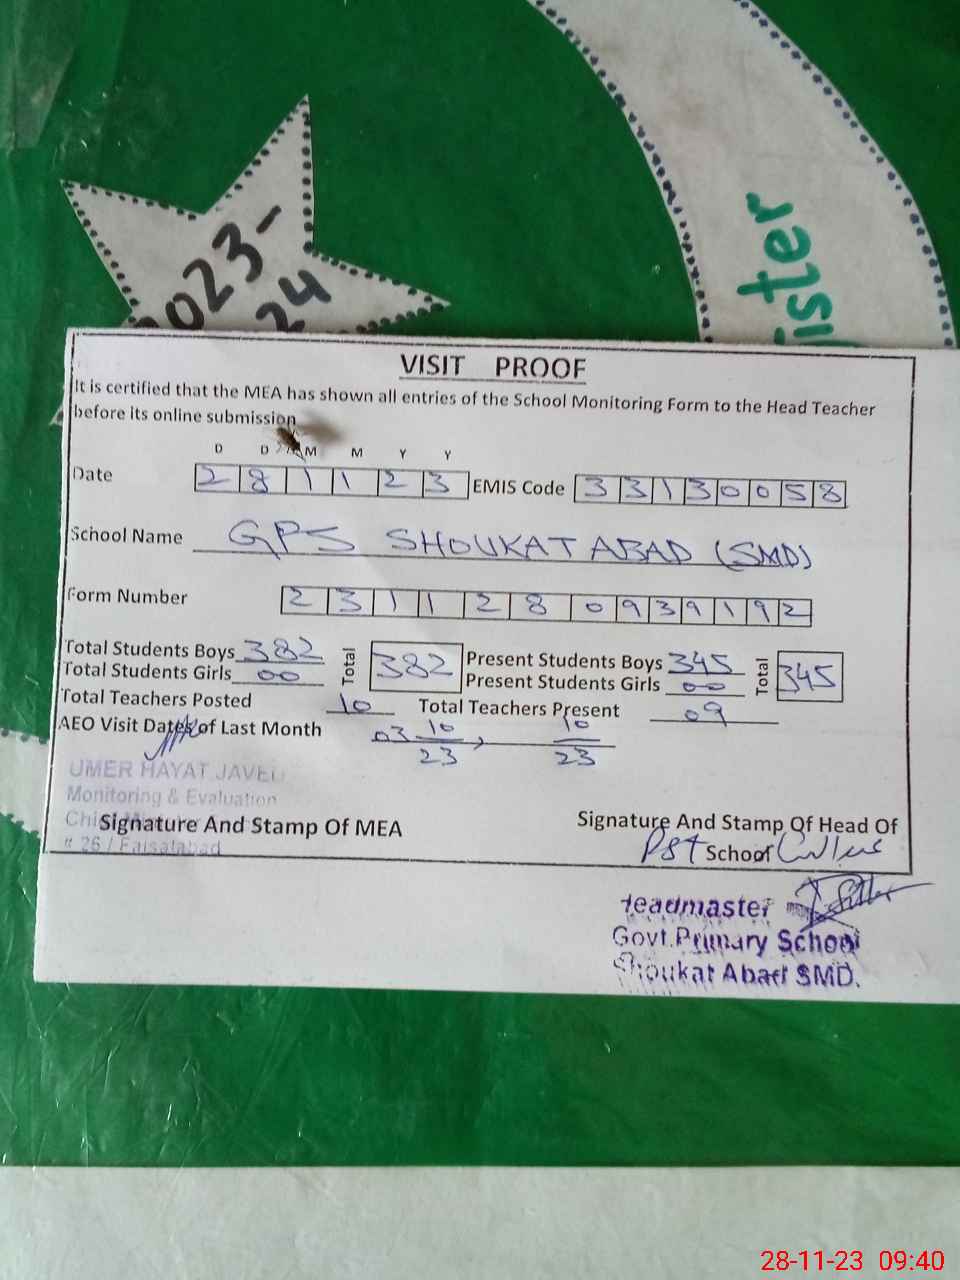 2023-
24
ister
VISIT PROOF
It is certified that the MEA has shown all entries of the School Monitoring Form to the Head Teacher
before its online submission
D D M M Y Y
Date 2 8 1 1 2 3 EMIS Code 3 3 1 3 0 0 5 8
School Name GPS SHOUKAT ABAD (SMD)
Form Number 2 3 1 1 2 8 0 9 3 9 1 9 2
Total Students Boys 382 Total 382 Present Students Boys 345 Total 345
Total Students Girls 00 Present Students Girls 00
Total Teachers Posted 10 Total Teachers Present 09
AEO Visit Dates of Last Month 03 10/23, 10/23
UMER HAYAT JAVED
Monitoring & Evaluation
Chief Minister
Signature And Stamp Of MEA
# 26 / Faisalabad
Signature And Stamp Of Head Of
PST School
Headmaster
Govt. Primary School
Shoukat Abad SMD.
28-11-23 09:40